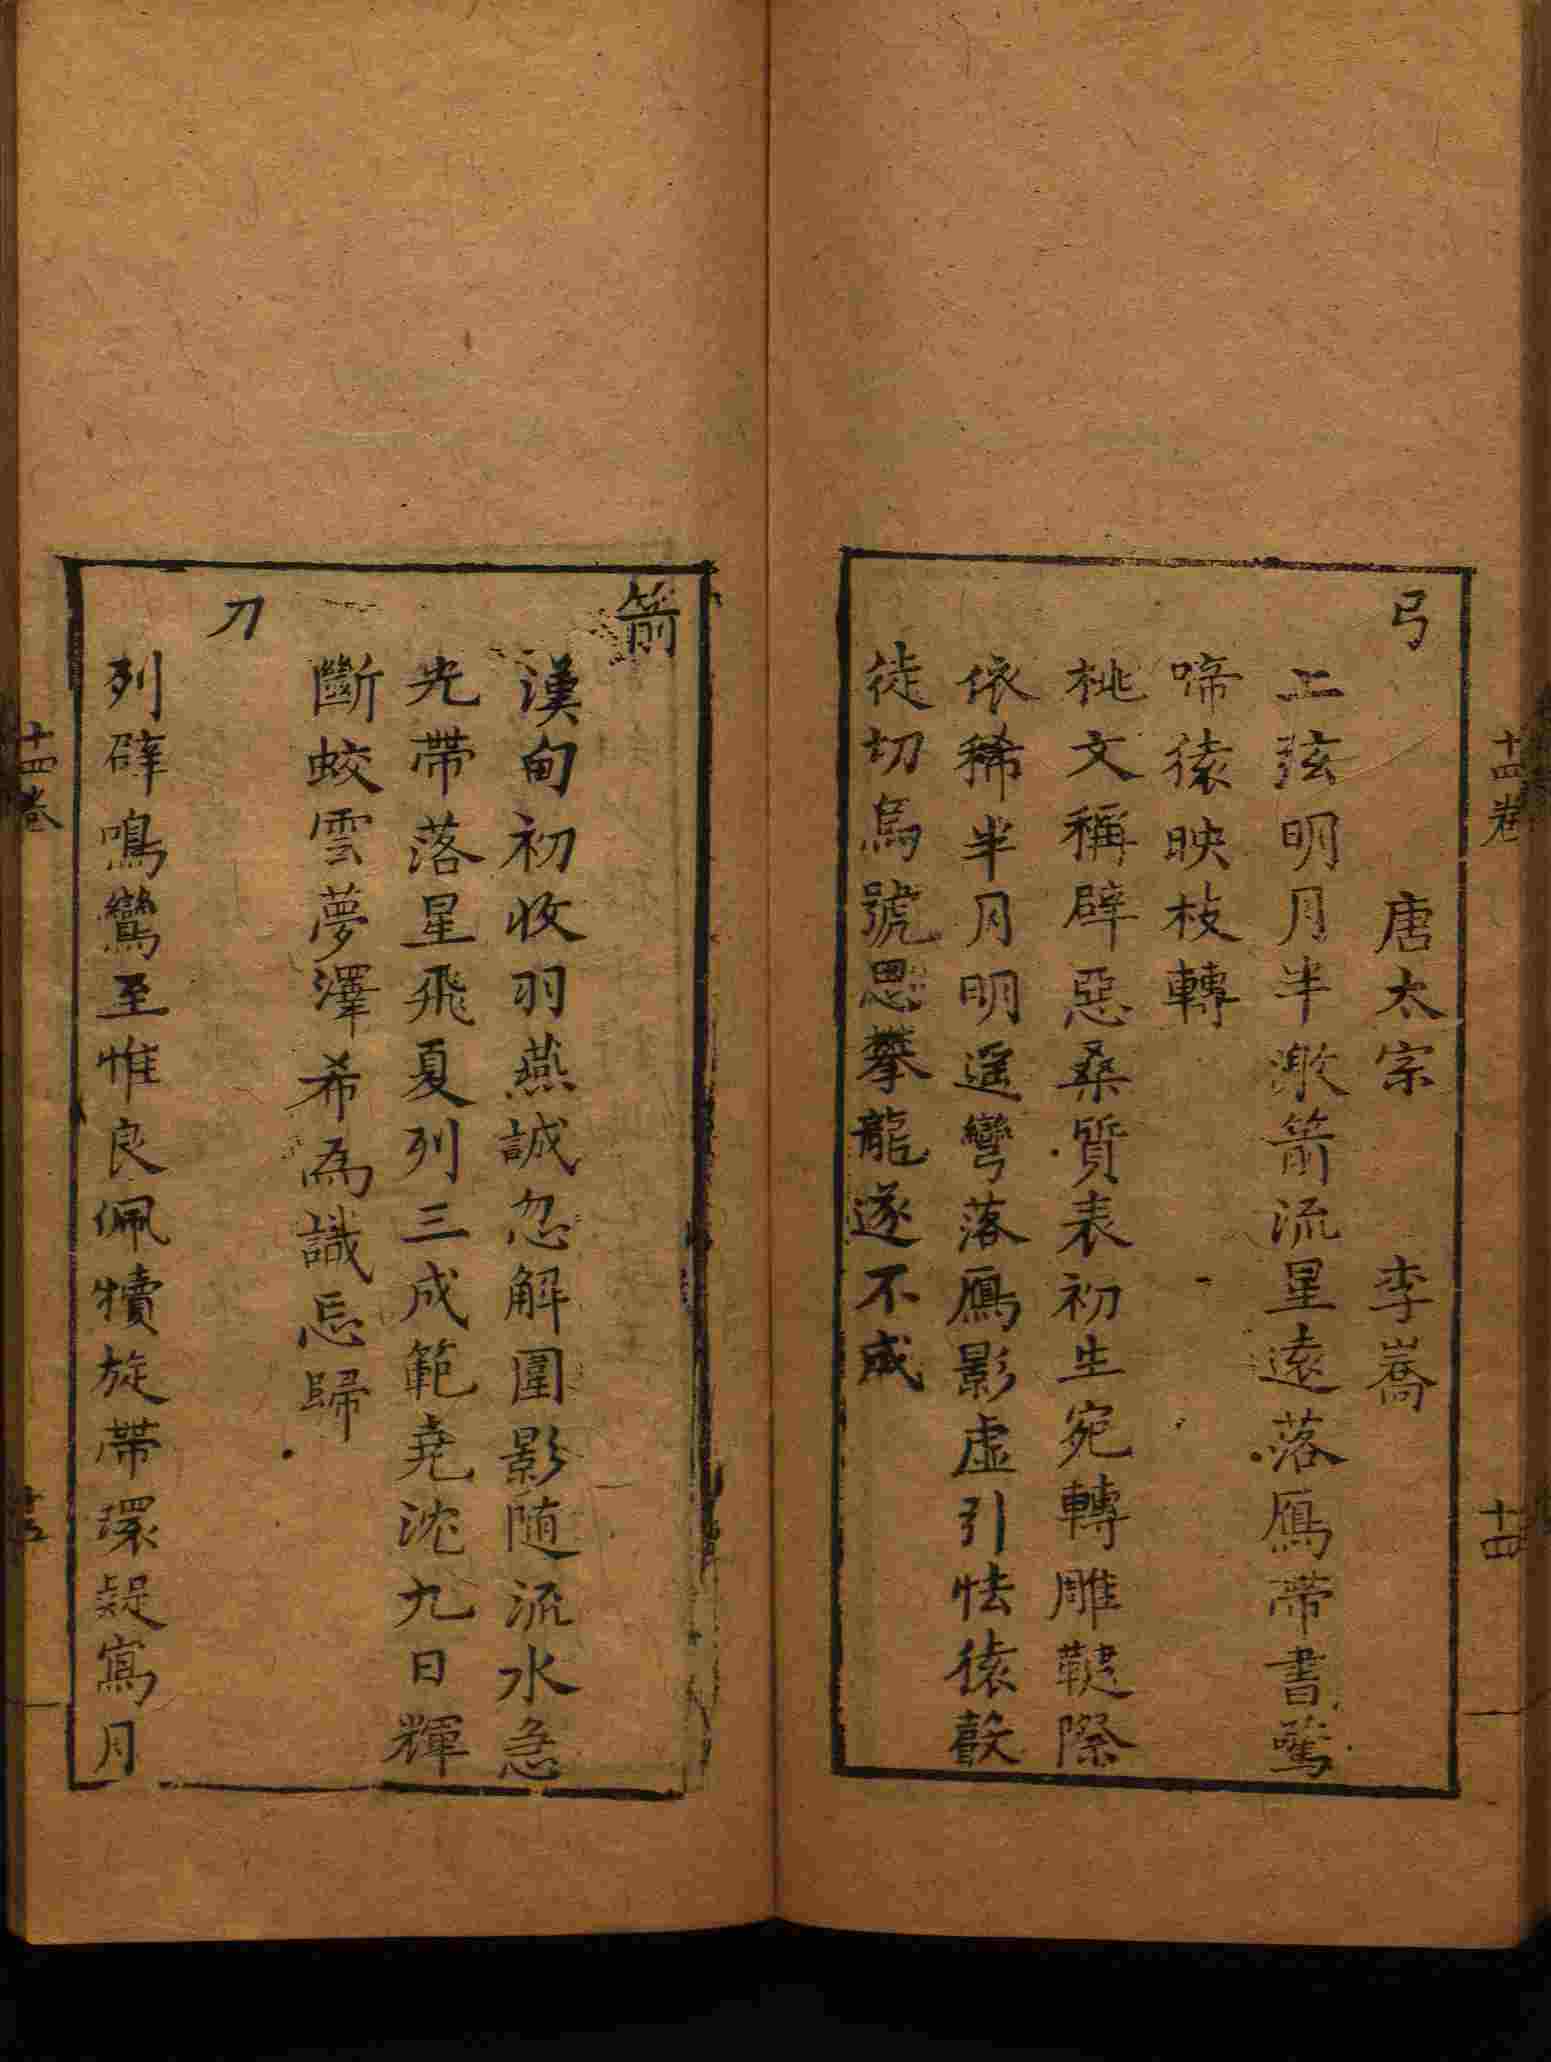 弓
唐太宗 李嶠
上弦明月半激箭流星遠落鴈帶書驚
啼猿映枝轉
桃文稱辟惡桑質表初生宛轉雕鞬際
依稀半月明遥彎落鴈影虛引怯猿聲
徒切烏號思攀龍遂不成
十四卷
十四
箭
漢甸初收羽燕誠忽解圍影随流水急
光帶落星飛夏列三成範堯沈九日輝
斷蛟雲夢澤希為識忘歸
刀
列辟鳴鸞至惟良佩犢旋帶環疑寫月
十四卷
十五